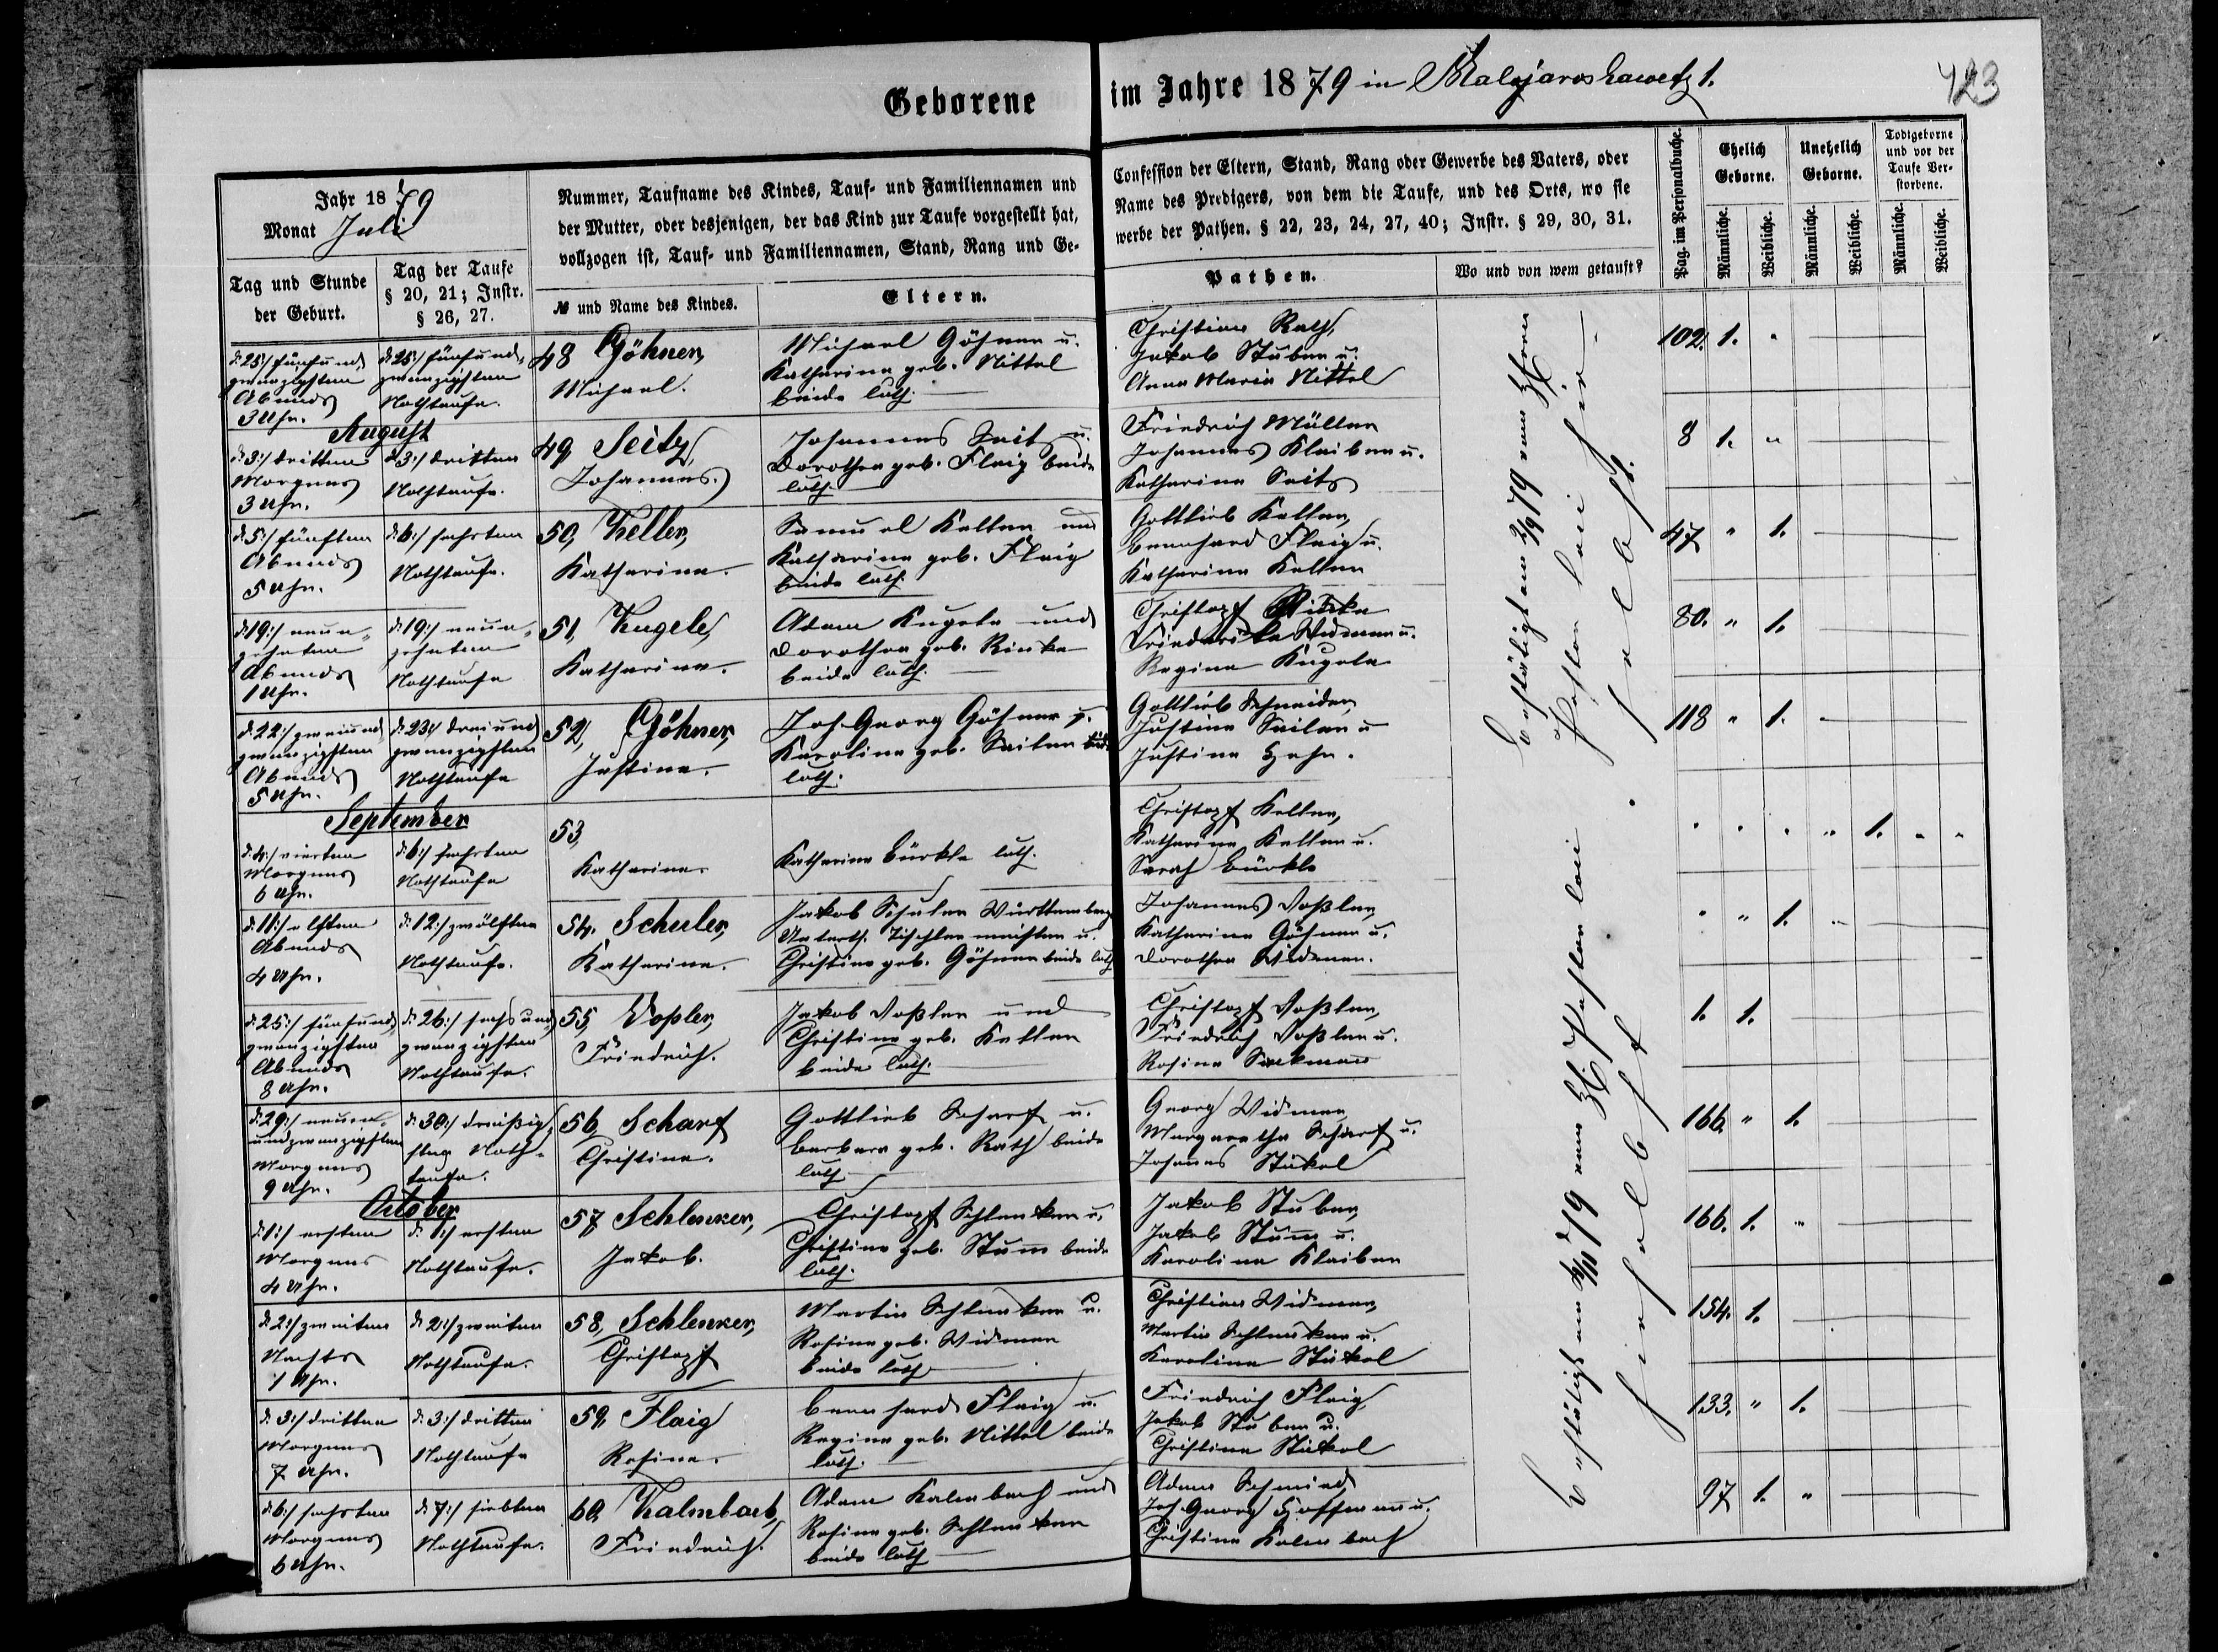 Geborene im Jahre 1879 in Malojaroslawetz 1.
423
Jahr 1879
Monat Juli
Tag und Stunde
der Geburt.
Tag der Taufe
§ 20, 21; Instr.
§ 26, 27.
Nummer, Taufname des Kindes, Tauf- und Familiennamen und
der Mutter, oder desjenigen, der das Kind zur Taufe vorgestellt hat,
vollzogen ist, Tauf- und Familiennamen, Stand, Rang und Ge-
№ und Name des Kindes.
Eltern.
Confession der Eltern, Stand, Rang oder Gewerbe des Vaters, oder
Name des Predigers, von dem die Taufe, und des Orts, wo sie
werbe der Pathen. § 22, 23, 24, 27, 40; Instr. § 29, 30, 31.
Pathen.
Wo und von wem getauft?
Pag. im Personalbuche.
Ehelich
Geborne.
Unehelich
Geborne.
Todtgeborne
und vor der
Taufe Ver-
storbene.
Männliche.
Weibliche.
Männliche.
Weibliche.
Männliche.
Weibliche.
d. 25:/ fünfund-
zwanzigsten
Abends
3 Uhr.
d. 25:/ fünfund-
zwanzigsten
Nothtaufe.
48 Göhner,
Michael.
Michael Göhner u.
Katharina geb. Nittel
beide luth.
Christian Rath,
Jakob Stuber u.
Anna Maria Nittel
102. 1. "
August
d. 3:/ dritten
Morgens
3 Uhr.
d. 3:/ dritten
Nothtaufe.
49, Seitz,
Johannes.
Johannes Seitz u.
Dorothea geb. Flaig beide
luth.
Friedrich Müller
Johannes Klaiber u.
Katharina Seitz
8 1. "
d. 5:/ fünften
Abends
5 Uhr.
d. 6:/ sechsten
Nothtaufe.
50, Keller,
Katharina.
Samuel Keller und
Katharina geb. Flaig
beide luth.
Gottlieb Keller,
Bernhard Flaig u.
Katharina Keller
47 " 1.
d. 19:/ neun-
zehnten
Abends
1 Uhr.
d. 19:/ neun-
zehnten
Nothtaufe
51, Kugele,
Katharina.
Adam Kugele und
Dorothea geb. Rinke
beide luth.
Christoph Rinke
Friederika Widmer u.
Regina Kugele
80. " 1.
d. 22:/ zweiund
zwanzigsten
Abends
5 Uhr.
d. 23:/ dreiund
zwanzigsten
Nothtaufe
52, Göhner,
Justina.
Joh. Georg Göhner u.
Karolina geb. Sailer beide
luth.
Gottlieb Schneider,
Justina Sailer u
Justina Hahn.
118 " 1.
September
d. 4:/ vierten
Morgens
6 Uhr.
d. 6:/ sechsten
Nothtaufe
53,
Katharina.
Katharina Bürkle luth.
Christoph Keller,
Katharina Keller u.
Sarah Bürkle
" " " " 1. " "
d. 11:/ elften
Abends
4 Uhr.
d. 12:/ zwölften
Nothtaufe.
54. Schuler,
Katharina.
Jakob Schuler Württemberg.
Unterth. Tischlermeister u.
Christina geb. Göhner beide luth
Johannes Voßler,
Katharina Göhner u.
Dorothea Widmer.
" " 1. "
d. 25:/ fünfund
zwanzigsten
Abends
8 Uhr.
d. 26:/ sechsund
zwanzigsten
Nothtaufe.
55, Voßler,
Friedrich.
Jakob Voßler und
Christina geb. Keller
beide luth.
Christoph Voßler,
Friedrich Voßler u.
Rosina Sackmann
1. 1.
d. 29:/ neun-
undzwanzigsten
Morgens
9 Uhr.
d. 30:/ dreißig-
sten Noth-
taufe.
56, Scharf
Christina.
Gottlieb Scharf u.
Barbara geb. Rath beide
luth.
Georg Widmer,
Margaretha Scharf u.
Johannes Stükel
166. " 1.
October
d. 1:/ ersten
Morgens
4 Uhr.
d. 1:/ ersten
Nothtaufe.
57, Schlenker,
Jakob.
Christoph Schlenker u.
Christina geb. Stumm beide
luth.
Jakob Stuber,
Jakob Stumm u.
Karolina Klaiber
166. 1. "
d. 2:/ zweiten
Nachts
1 Uhr.
d. 2:/ zweiten
Nothtaufe.
58, Schlenker,
Christoph
Martin Schlenker u.
Rosina geb. Widmer
beide luth
Christian Widmer,
Martin Schlenker u.
Karolina Stükel
154. 1.
d. 3:/ dritten
Morgens
7 Uhr.
d. 3:/ dritten
Nothtaufe
59, Flaig
Rosina.
Bernhard Flaig u.
Regina geb. Nittel beide
luth.
Friedrich Flaig,
Jakob Stuber u.
Christina Stükel
133. " 1.
d. 6:/ sechsten
Morgens
6 Uhr.
d. 7:/ siebten
Nothtaufe.
60, Kalmbach,
Friedrich.
Adam Kalmbach und
Rosina geb. Schlenker
beide luth
Adam Schmied,
Joh. Georg Hoffmann u.
Christina Kalmbach
97 1. "
Bestätigt am
Pastor
hierselbst.
Bestätigt am
Pastor
hierselbst